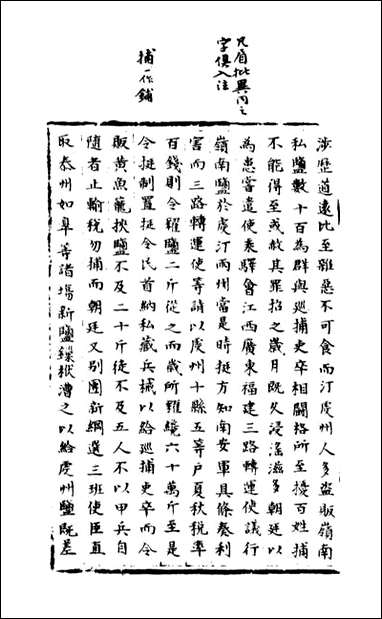 凡眉批異同之
字俱入注
捕一作鋪
涉歷道遠比至雜惡不可食而汀虔州人多盜販嶺南
私鹽數十百為群與巡捕吏卒相鬭格所至擾百姓捕
不能得至或赦其罪招之歲月既久浸淫滋多朝廷以
為患當遣使乘驛會江西廣東福建三路轉運使議行
嶺南鹽於虔汀兩州當是時挺方知南安軍具條奏利
害而三路轉運使等請以虔州十縣五等戶夏秋稅率
百錢則令糴鹽二斤從之而歲所糴纔六十萬斤至是
令挺制置挺令民首納私藏兵械以給巡捕吏卒而令
販黃魚籠挾鹽不及二十斤徒不及五人不以甲兵自
隨者止輸稅勿捕而朝廷又別團新綱選三班使臣直
取泰州如皋等諸場新鹽鏁栿漕之以給虔州鹽既差